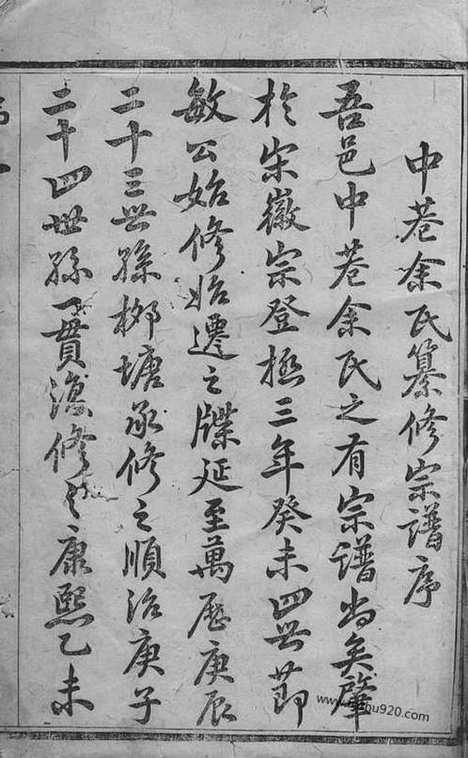 中巷余氏纂修宗譜序
吾邑中巷余氏之有宗譜尚矣肇
於宋徽宗登極三年癸未四世節
敏公始修始遷之牒延至萬曆庚辰
二十三世孫柳塘承修之順治庚子
二十四世孫一貫復修之康熙乙未